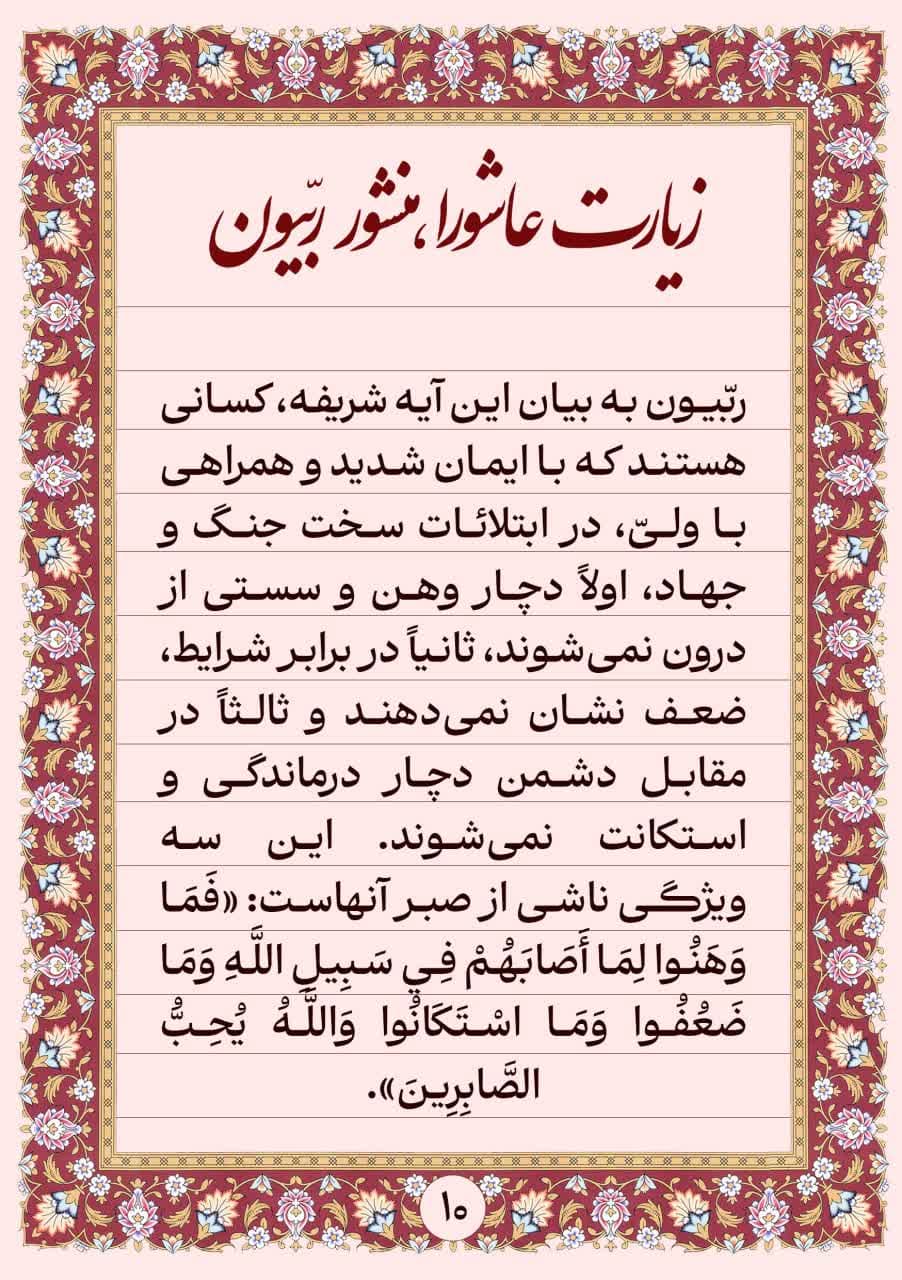 زیارت عاشورا، منشور ربّیون
ربّیون به بیان این آیه شریفه، کسانی
هستند که با ایمان شدید و همراهی
با ولیّ، در ابتلائات سخت جنگ و
جهاد، اولاً دچار وهن و سستی از
درون نمی‌شوند، ثانیاً در برابر شرایط،
ضعف نشان نمی‌دهند و ثالثاً در
مقابل دشمن دچار درماندگی و
استکانت نمی‌شوند. این سه
ویژگی ناشی از صبر آنهاست: «فَمَا
وَهَنُوا لِمَا أَصَابَهُمْ فِي سَبِيلِ اللَّهِ وَمَا
ضَعُفُوا وَمَا اسْتَكَانُوا وَاللَّهُ يُحِبُّ
الصَّابِرِينَ».
۱۰